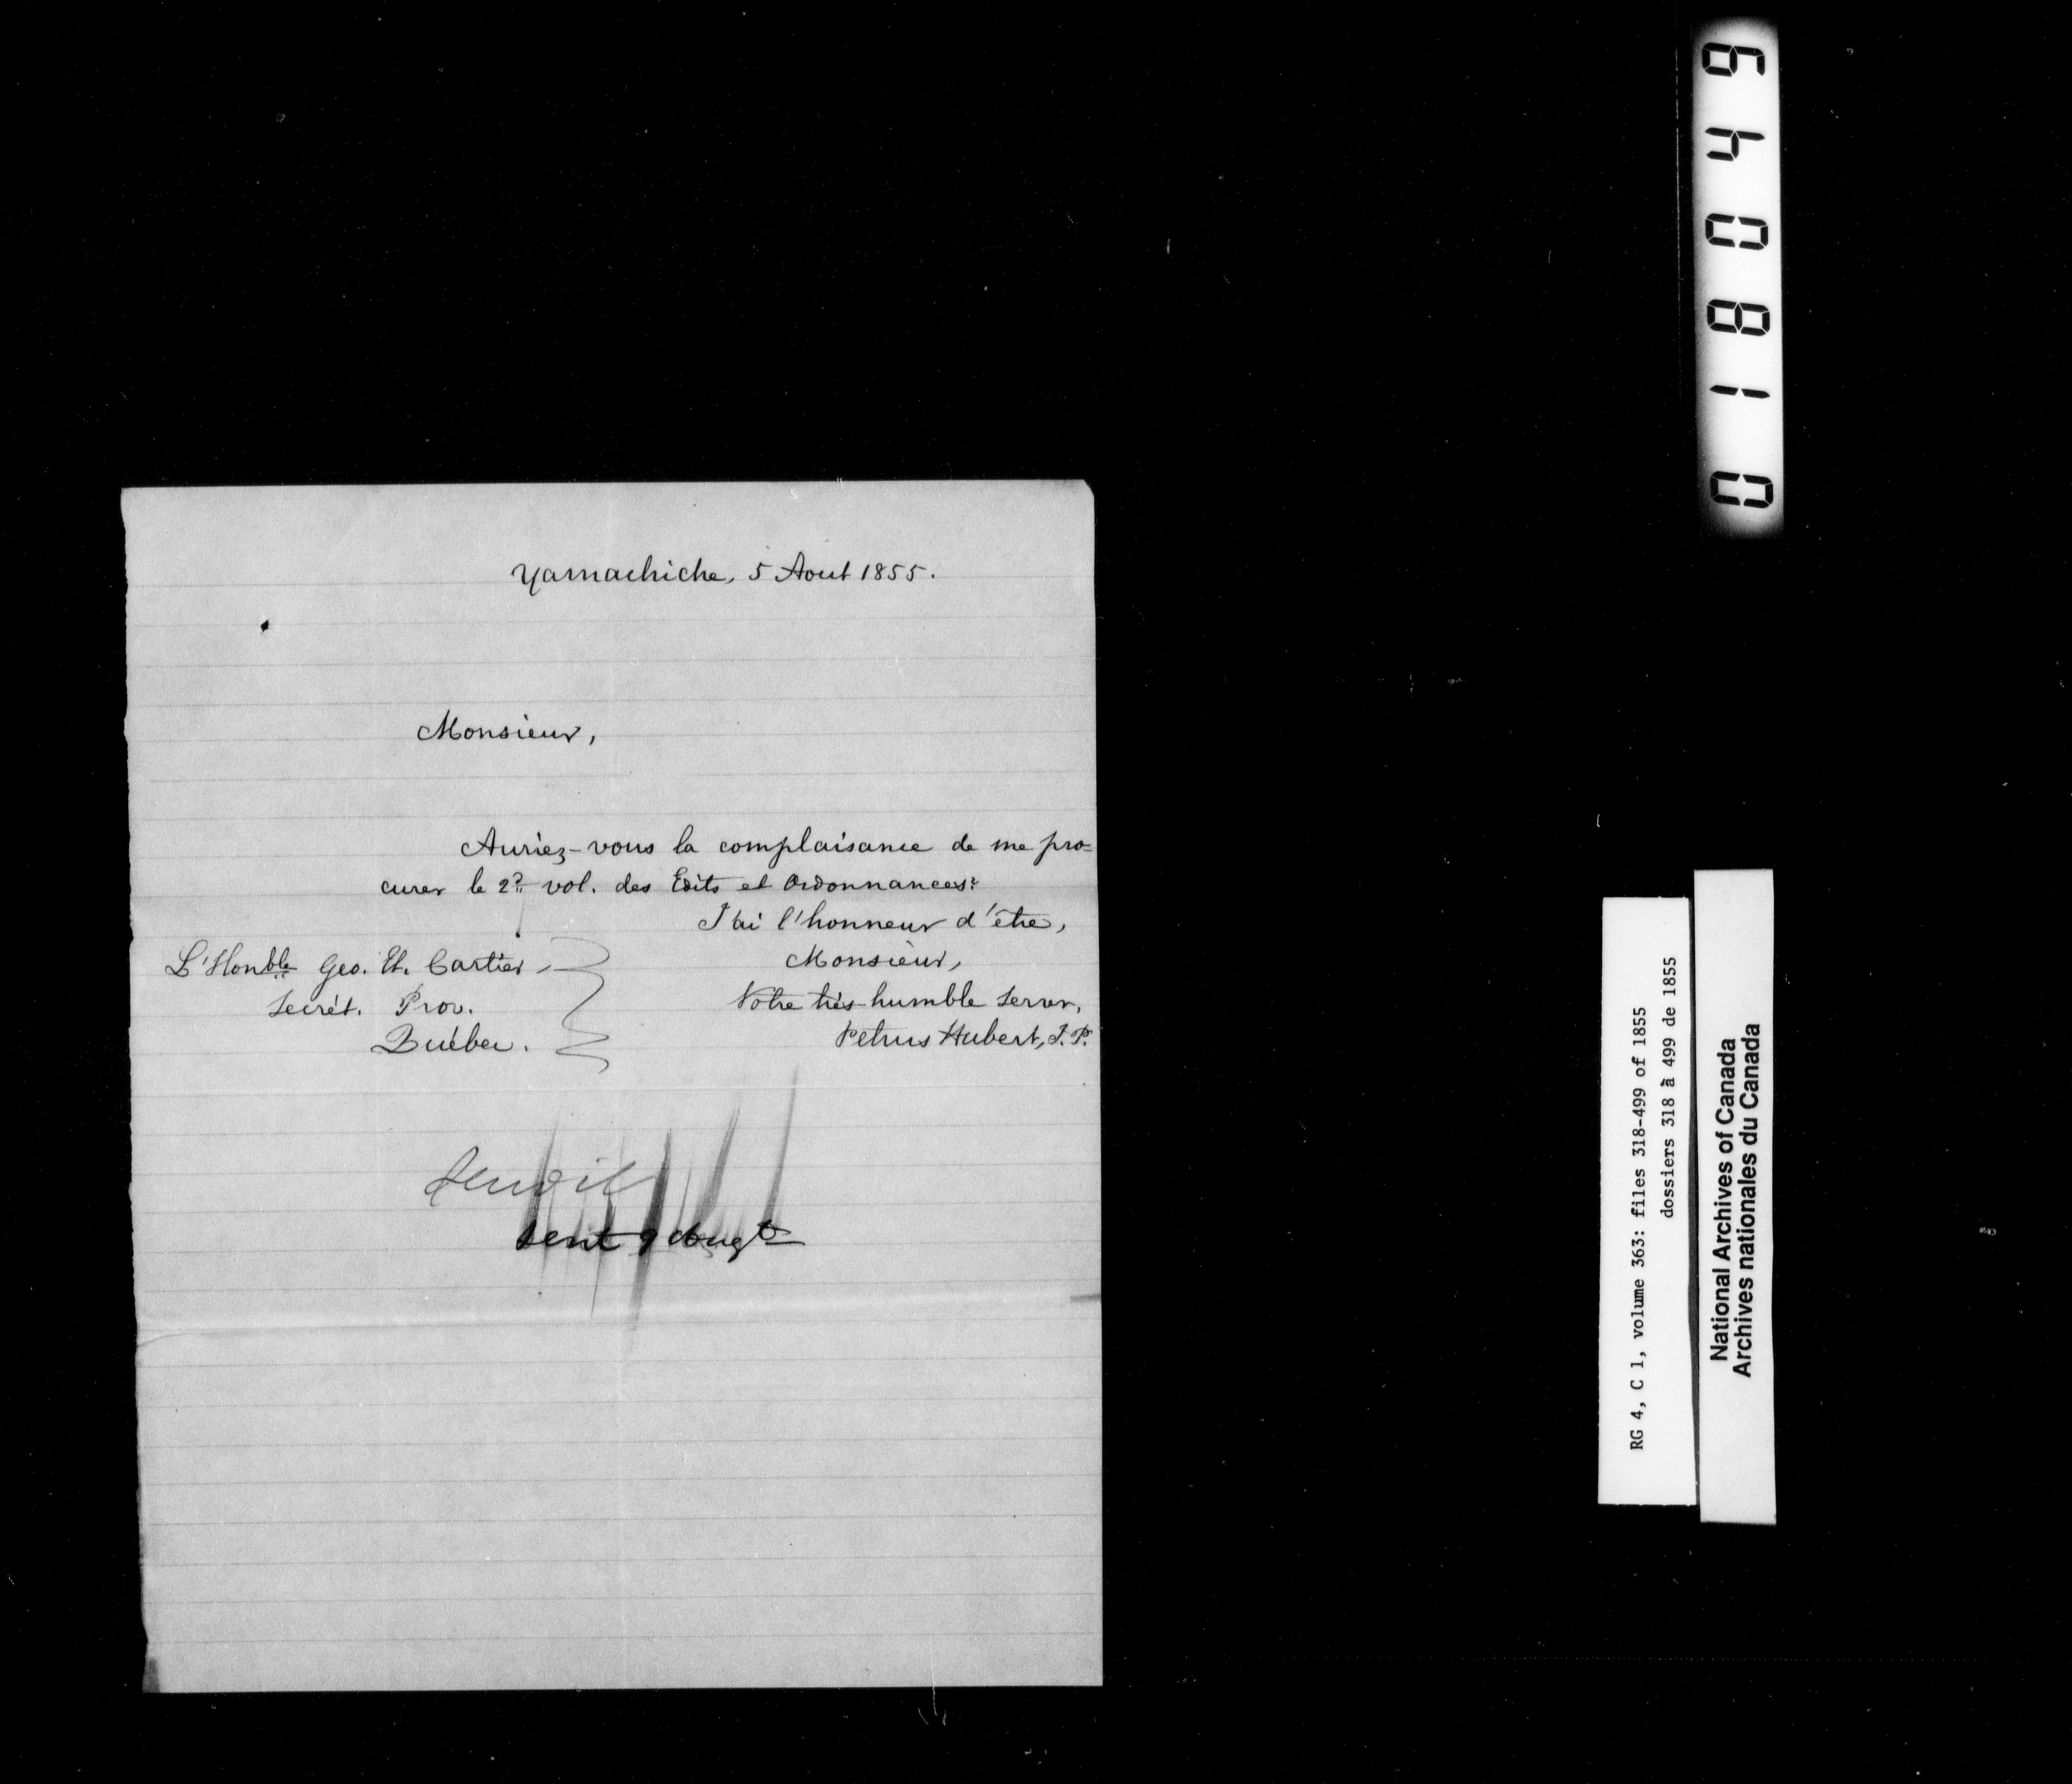 Yamachiche, 5 Aout 1855.
Monsieur,
Auriez-vous la complaisance de me pro=
curer le 2d vol. des Edits et Ordonnances?
J'ai l'honneur d'être,
Monsieur,
Votre très-humble Servr,
Petrus Hubert, J.P.
L'Honble Geo. Et. Cartier,
Secrét. Prov.
Québec.
Send it
Sent 9 Augt
018049
RG 4, C 1, volume 363: files 318-499 of 1855
dossiers 318 à 499 de 1855
National Archives of Canada
Archives nationales du Canada